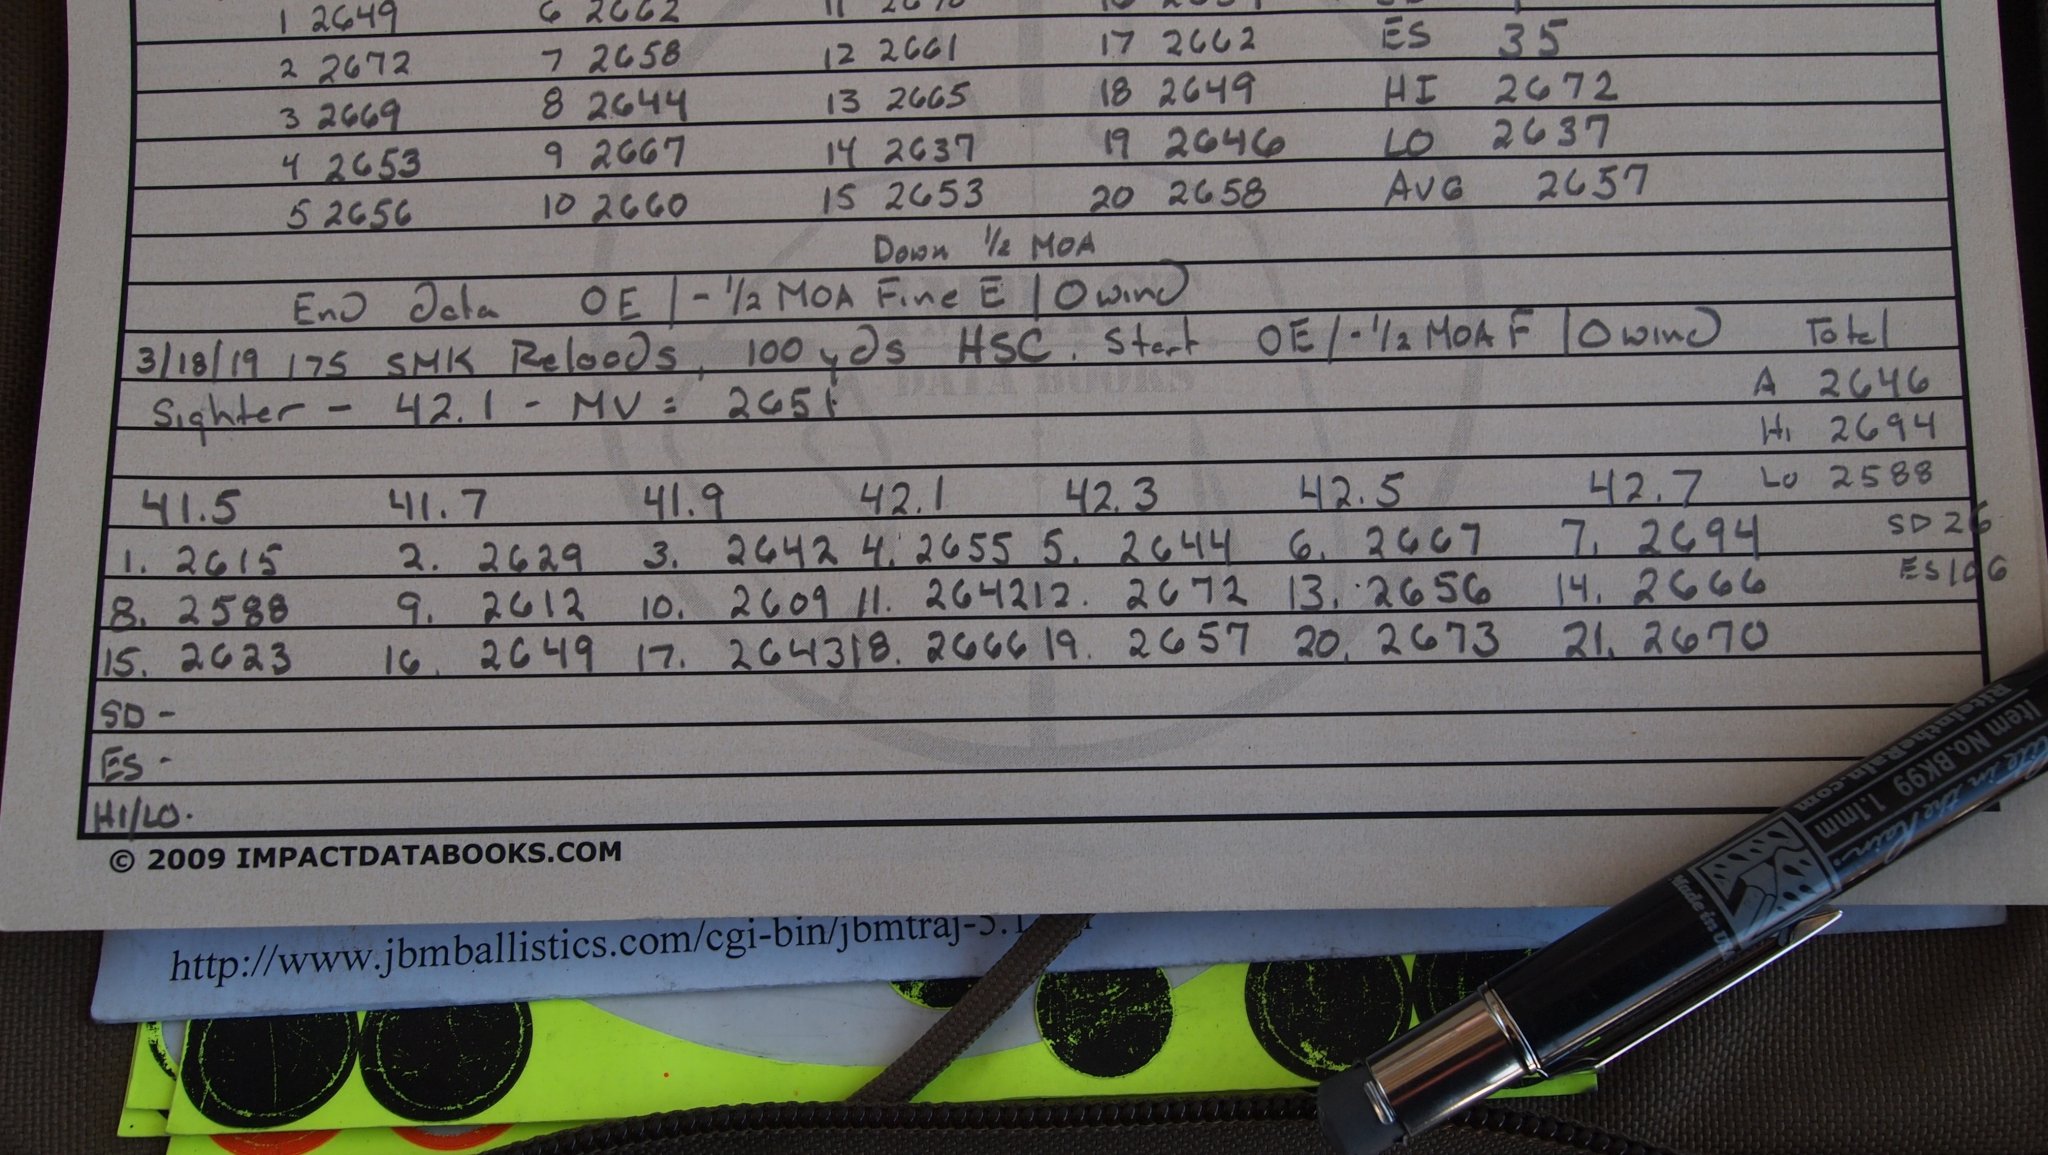 1 2649 6 2662 11 16
2 2672 7 2658 12 2661 17 2662 ES 35
3 2669 8 2644 13 2665 18 2649 HI 2672
4 2653 9 2667 14 2637 19 2646 LO 2637
5 2656 10 2660 15 2653 20 2658 AVG 2657
Down 1/2 MOA
End data OE / -1/2 MOA Fine E / 0 wind
3/18/19 175 SMK Reloads, 100 yds HSC. Start OE / -1/2 MOA F / 0 wind Total
Sighter - 42.1 - MV = 2651 A 2646
Hi 2694
41.5 41.7 41.9 42.1 42.3 42.5 42.7 Lo 2588
1. 2615 2. 2629 3. 2642 4. 2655 5. 2644 6. 2667 7. 2694 SD 26
8. 2588 9. 2612 10. 2609 11. 2642 12. 2672 13. 2656 14. 2666 ES 106
15. 2623 16. 2649 17. 2643 18. 2666 19. 2657 20. 2673 21. 2670
SD -
ES -
HI/LO.
© 2009 IMPACTDATABOOKS.COM
http://www.jbmballistics.com/cgi-bin/jbmtraj-5.1
DATA BOOKS
in the Rain
Item No.BK99 1.1mm
RiteintheRain.com
Made in